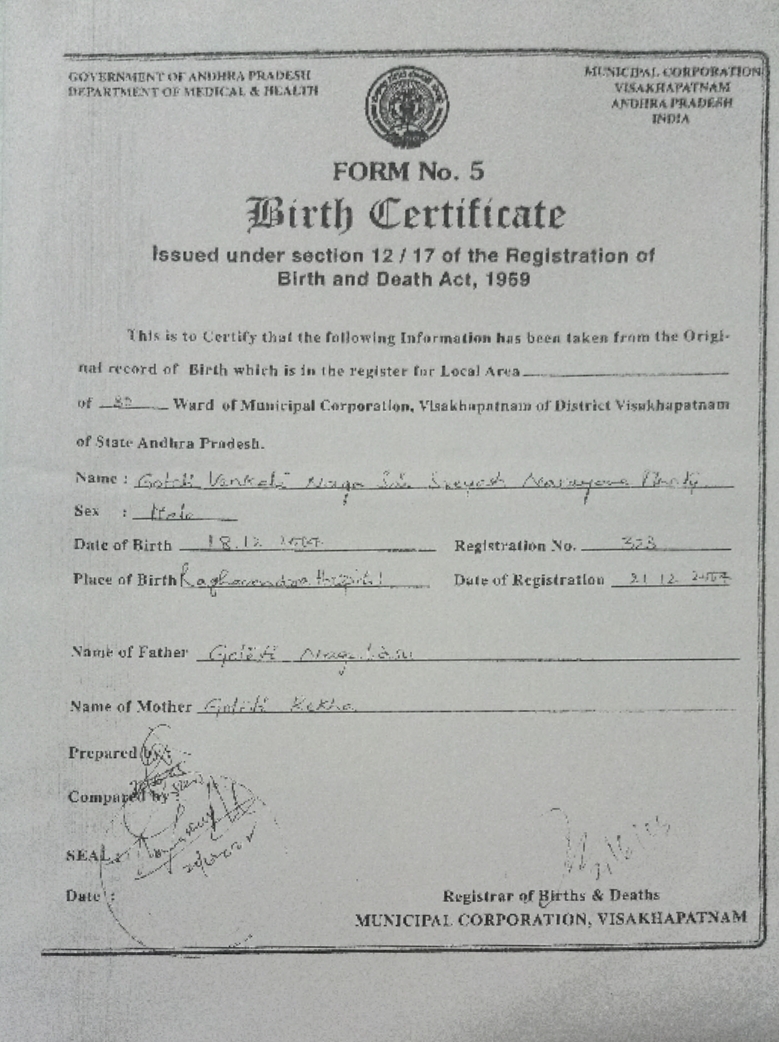 GOVERNMENT OF ANDHRA PRADESH
DEPARTMENT OF MEDICAL & HEALTH
MUNICIPAL CORPORATION
VISAKHAPATNAM
ANDHRA PRADESH
INDIA
FORM No. 5
Birth Certificate
Issued under section 12 / 17 of the Registration of
Birth and Death Act, 1969
This is to Certify that the following Information has been taken from the Origi-
nal record of Birth which is in the register for Local Area
of Ward of Municipal Corporation, Visakhapatnam of District Visakhapatnam
of State Andhra Pradesh.
Name : Narayana
Sex : Male
Date of Birth 18.12 Registration No. 323
Place of Birth Raghavendra Hospital Date of Registration 21 12
Name of Father
Name of Mother Rekha
Prepared by :
Compared by
SEAL :
Date :
Registrar of Births & Deaths
MUNICIPAL CORPORATION, VISAKHAPATNAM